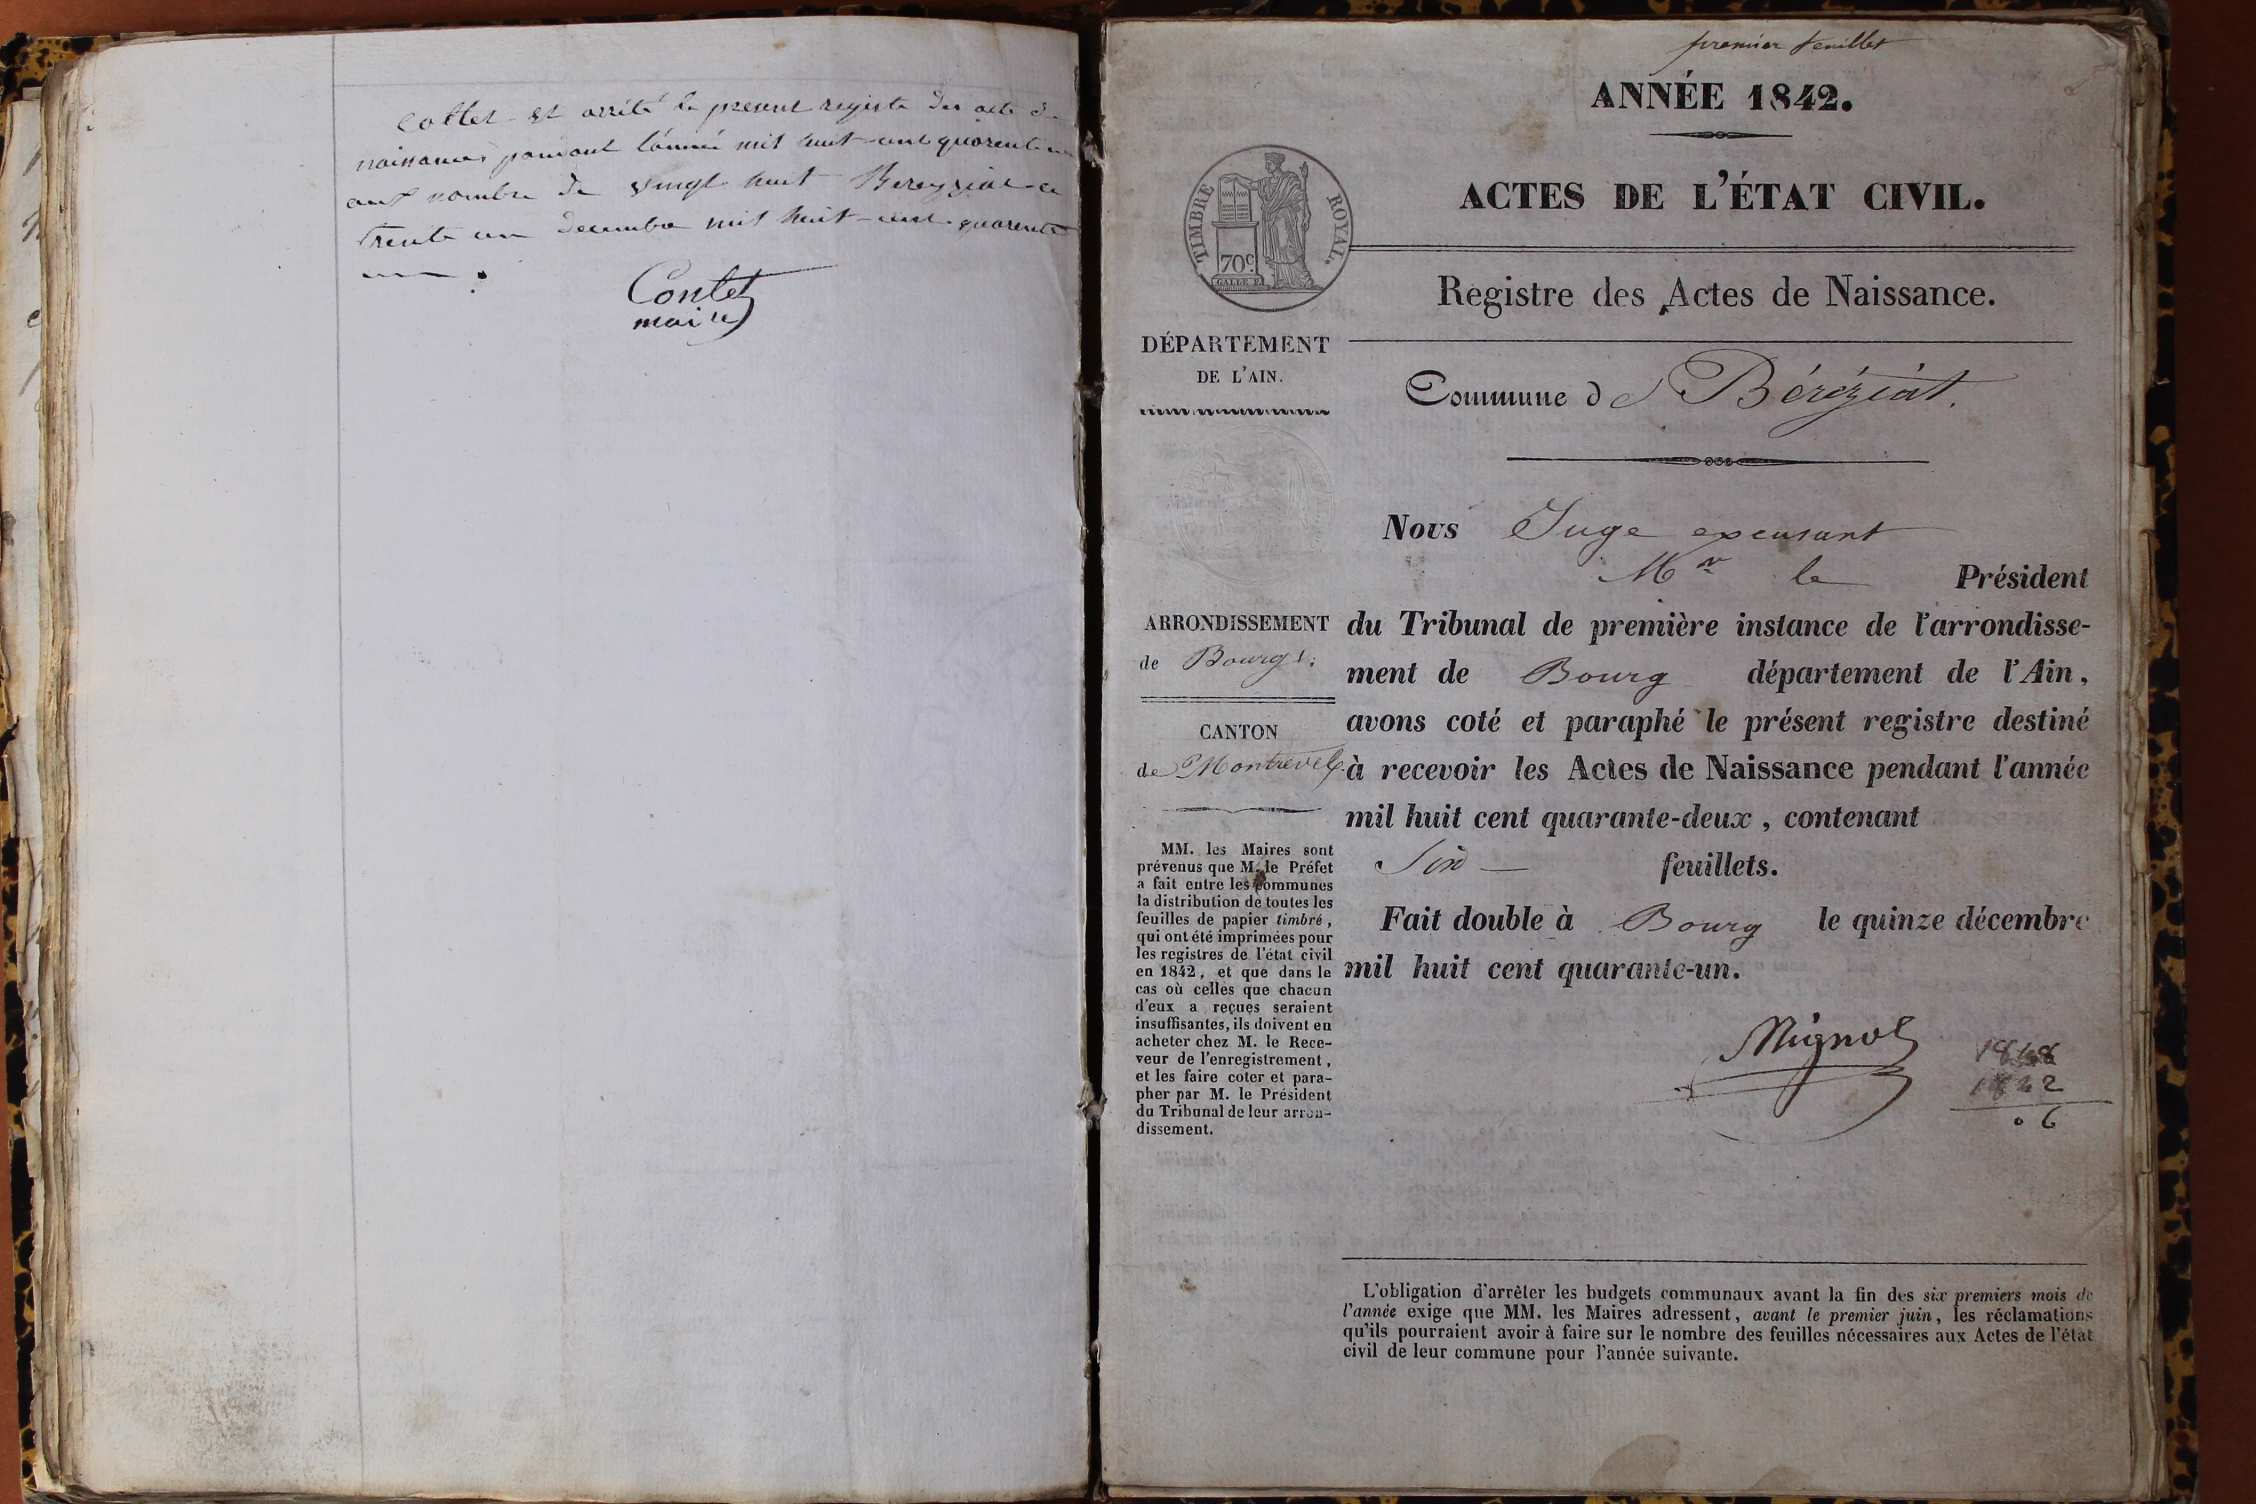 et arrêté le present registe des acte de
naissances pendant l'année mil huit cent quarente un
aux nombre de vingt huit Bereyziat ce
trente un decembre mil huit cent quarente
un.
Contet
maire
premier feuillet
ANNÉE 1842.
ACTES DE L'ÉTAT CIVIL.
TIMBRE ROYAL.
70c
GALLE F.
Registre des Actes de Naissance.
DÉPARTEMENT
DE L'AIN.
Commune de Béréziat.
Nous Juge excusant
Mr le Président
du Tribunal de première instance de l'arrondisse-
ment de Bourg département de l'Ain,
avons coté et paraphé le présent registre destiné
à recevoir les Actes de Naissance pendant l'année
mil huit cent quarante-deux, contenant
Six feuillets.
Fait double à Bourg le quinze décembre
mil huit cent quarante-un.
Mignot
1848
1842
06
ARRONDISSEMENT
de Bourg
CANTON
de Montrevel
MM. les Maires sont
prévenus que M. le Préfet
a fait entre les communes
la distribution de toutes les
feuilles de papier timbré,
qui ont été imprimées pour
les registres de l'état civil
en 1842, et que dans le
cas où celles que chacun
d'eux a reçues seraient
insuffisantes, ils doivent en
acheter chez M. le Rece-
veur de l'enregistrement,
et les faire coter et para-
pher par M. le Président
du Tribunal de leur arron-
dissement.
L'obligation d'arrêter les budgets communaux avant la fin des six premiers mois de
l'année exige que MM. les Maires adressent, avant le premier juin, les réclamations
qu'ils pourraient avoir à faire sur le nombre des feuilles nécessaires aux Actes de l'état
civil de leur commune pour l'année suivante.